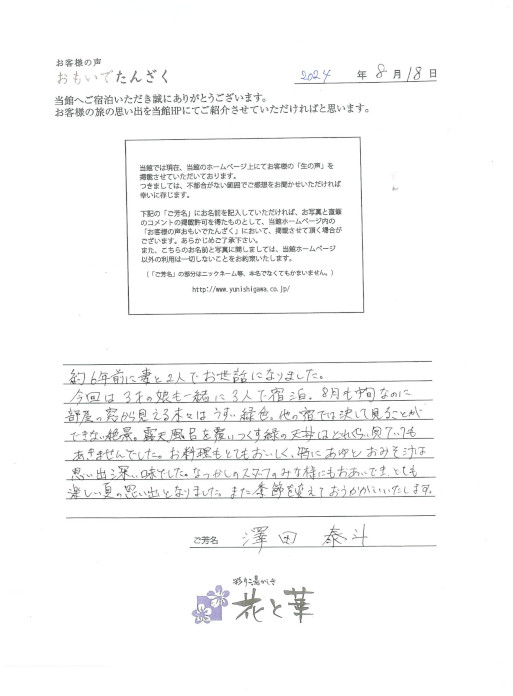 お客様の声
おもいでたんざく
2024 年 8 月 18 日
当館へご宿泊いただき誠にありがとうございます。
お客様の旅の思い出を当館HPにてご紹介させていただければと思います。
当館では現在、当館のホームページ上にてお客様の「生の声」を
掲載させていただいております。
つきましては、不都合がない範囲でご感想をお聞かせいただければ
幸いに存じます。
下記の「ご芳名」にお名前を記入していただければ、お写真と直筆
のコメントの掲載許可を得たものとして、当館ホームページ内の
「お客様の声おもいでたんざく」において、掲載させて頂く場合が
ございます。あらかじめご了承下さい。
また、こちらのお名前と写真に関しましては、当館ホームページ
以外の利用は一切しないことをお約束いたします。
(「ご芳名」の部分はニックネーム等、本名でなくてもかまいません。)
http://www.yunishigawa.co.jp/
約6年前に妻と2人でお世話になりました。
今回は3才の娘も一緒に3人で宿泊。8月中旬なのに
部屋の窓から見える木々はうすい緑色。他の宿では決して見ることが
できない絶景。露天風呂を覆いつくす緑の天井はどれくらい見ていても
あきませんでした。お料理もとてもおいしく、特にあゆとおみそ汁は
思い出深い味でした。なつかしのスタッフのみな様にもおあいでき、とても
楽しい夏の思い出となりました。また季節を変えておうかがいいたします。
ご芳名 澤田 泰斗
彩り湯かしき
花と華